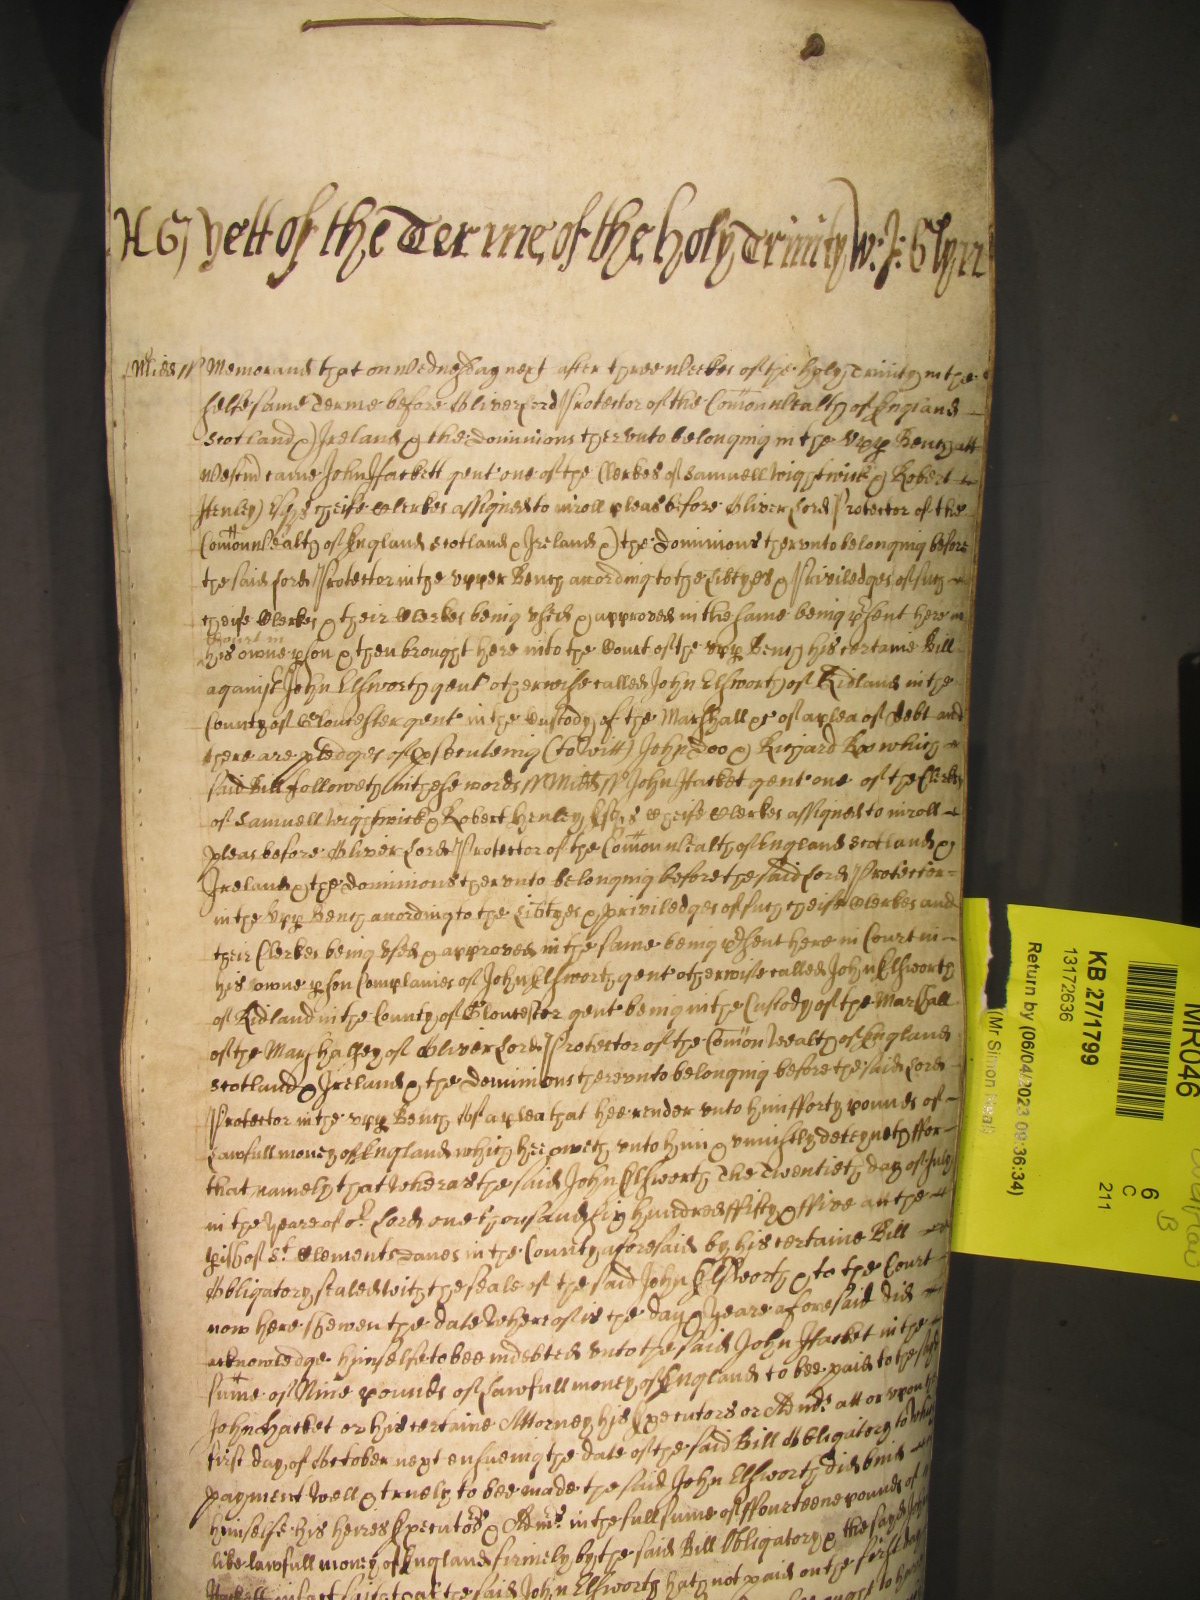 yett of the Terme of the holy Trinity W: J: Glyn
Midd // Memorand that on Wednesday next after three weekes of the holy Trinity in the
selfe same Terme before Oliver Lord Protector of the Comonwealth of England
Scotland & Ireland & the dominions therunto belonging in the Upp Bench att
Westm came John Hackett gent one of the Clerkes of Samuell Wightwick & Robert
Henley Esqrs cheife Clerkes assigned to inroll pleas before Oliver Lord Protector of the
Comonwealth of England Scotland & Ireland & the Dominions therunto belonging before
the said Lord Protector in the upper Bench according to the Libtyes & Priviledges of such
cheife Clerkes & their Clerkes being used & approved in the same being psent here in
Court in
his owne pson & then brought here into the Court of the upp Bench his certaine Bill
against John Elsworth gent otherwise called John Elsworth of Kidland in the
County of Gloucester gent in the Custody of the Marshall &c of a plea of debt and
there are pledges of pseculeing (to witt) John Doo & Richard Roo which
said Bill followeth in these words // Midd // John Hacket gent one of the Clerkes
of Samuell Wightwick & Robert Henley Esqrs Cheife Clerkes assigned to inroll
pleas before Oliver Lord Protector of the Comonwealth of England Scotland &
Ireland & the dominions therunto belonging before the said Lord Protector
in the Upp Bench according to the Libtyes & priviledges of such cheife Clerkes and
their Clerkes being used & approved in the same being psent here in Court in
his owne pson Complaines of John Elsworth gent otherwise called John Elsworth
of Kidland in the County of Gloucester gent being in the Custody of the Marshall
of the Marshalsey of Oliver Lord Protector of the Comonwealth of England
Scotland & Ireland & the Dominions therunto belonging before the said Lord
Protector in the upp Bench Of a plea that hee render unto him fforty pounds of
Lawfull money of England which hee oweth unto him & uniustly deteyneth ffor
that namely that wheras the said John Elsworth The Twentieth day of July
in the yeare of or Lord one thousand six hundred ffifty & ffive att the
pish of St Clements Danes in the County aforesaid by his certaine Bill
Obligatory sealed with the seale of the said John Elsworth & to the Court
now here shewen the date wherof is the day & yeare aforesaid did
acknowledge himselfe to bee indebted unto the said John Hacket in the
sume of Nine pounds of Lawfull money of England to bee paid to the said
John Hacket or his certaine Attorney his Executors or Admrs att or upon the
first day of October next ensueing the date of the said Bill Obligatory to which
payment well & truely to bee made the said John Elsworth did bind
himselfe his heires Executors & Admrs in the full sume of ffourteene pounds of
like lawfull money of England firmely by the said Bill Obligatory & the said John
Hackett in fact saith that the said John Elsworth hath not paid on the first day
MR046
KB 27/1799
13172636
Return by (06/04/2023 09:36:34)
(Mr Simon Neal)
6
C
211